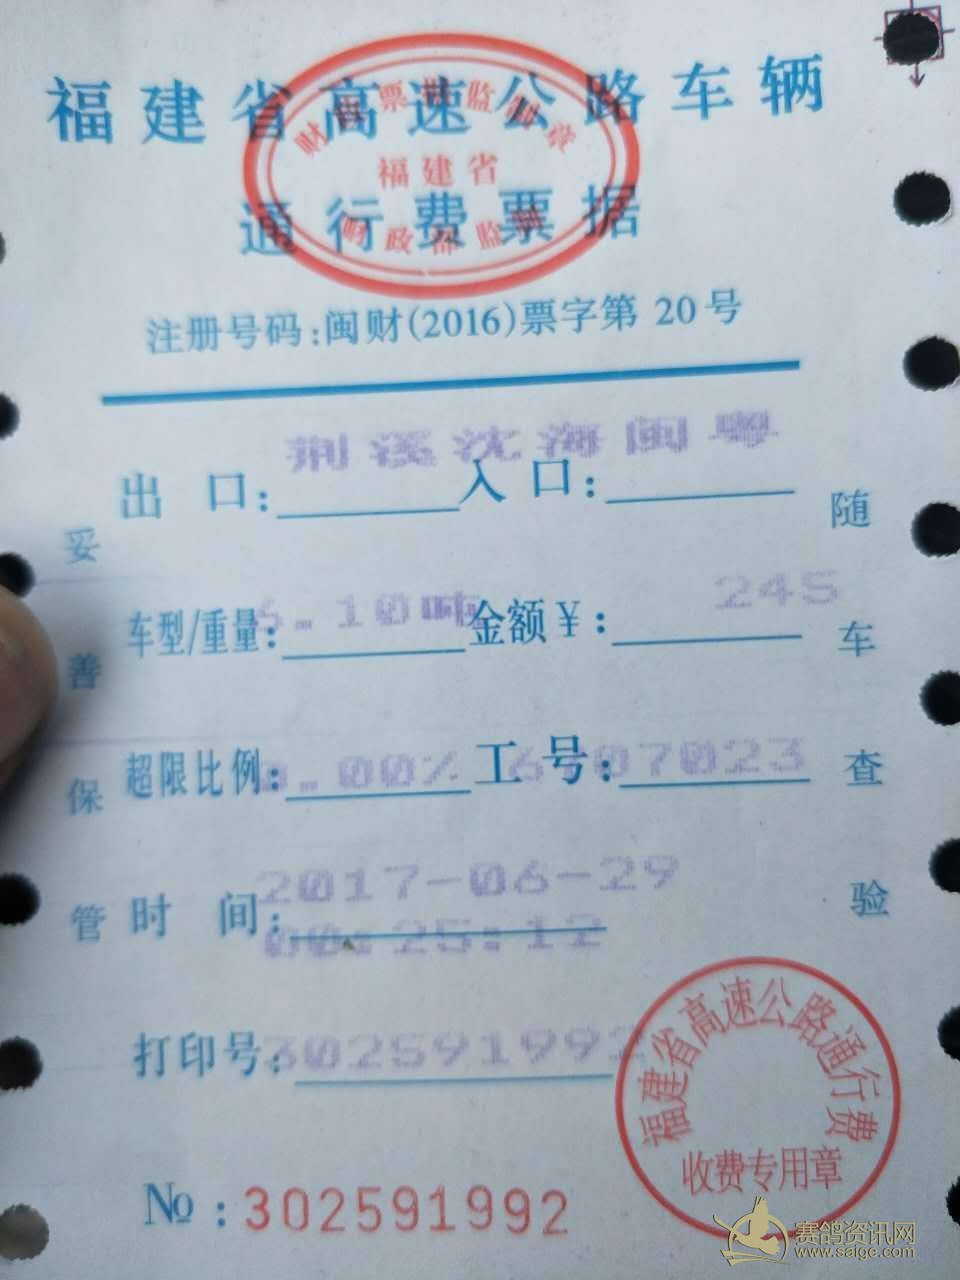 福建省高速公路车辆
财政票据监制章
福建省
通行费票据
财政部监制
注册号码:闽财(2016)票字第 20号
荆溪沈海闽粤
出 口: 入 口:
车型/重量: .10吨 金额￥: 245
超限比例: .00% 工 号: 6707023
时 间: 2017-06-29
00:25:12
打印号: 302591992
№ : 302591992
妥善保管
随车查验
福建省高速公路通行费
收费专用章
赛鸽资讯网
www.saige.com